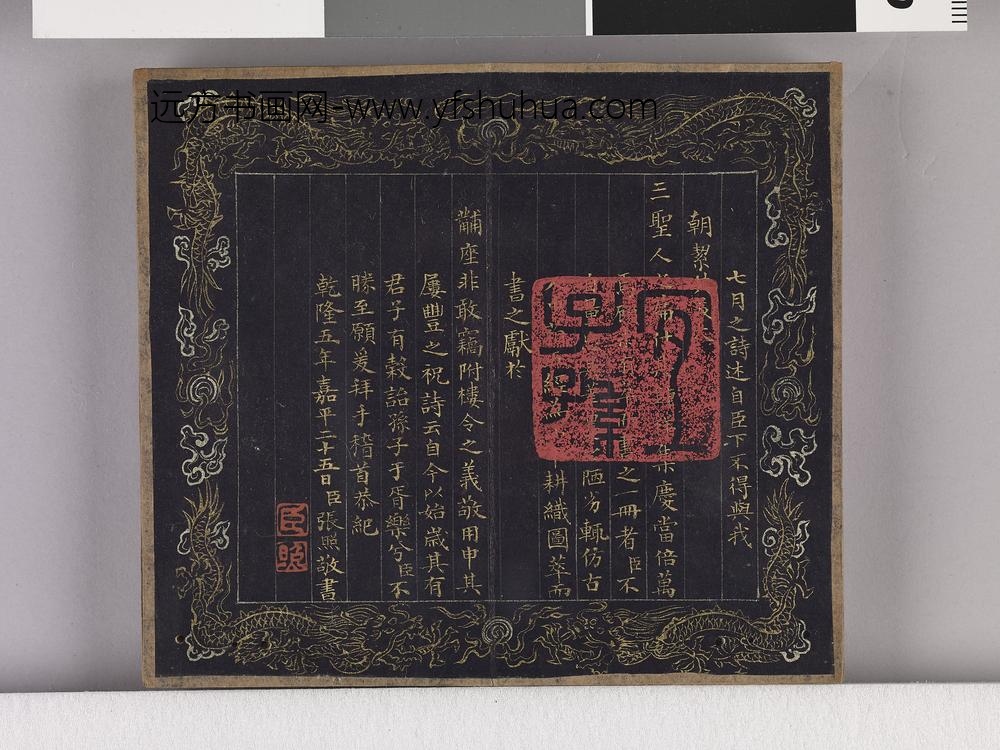 远方书画网-www.yfshuhua.com
七月之詩述自臣下不得與我
朝絜
三聖人集慶當倍萬
之一冊者臣不
陋劣輒仿古
耕織圖萃而
書之獻於
黼座非敢竊附樓令之義敬用申其
屢豐之祝詩云自今以始歲其有
君子有穀詒孫子于胥樂兮臣不
勝至願爰拜手稽首恭紀
乾隆五年嘉平二十五日臣張照敬書
臣照